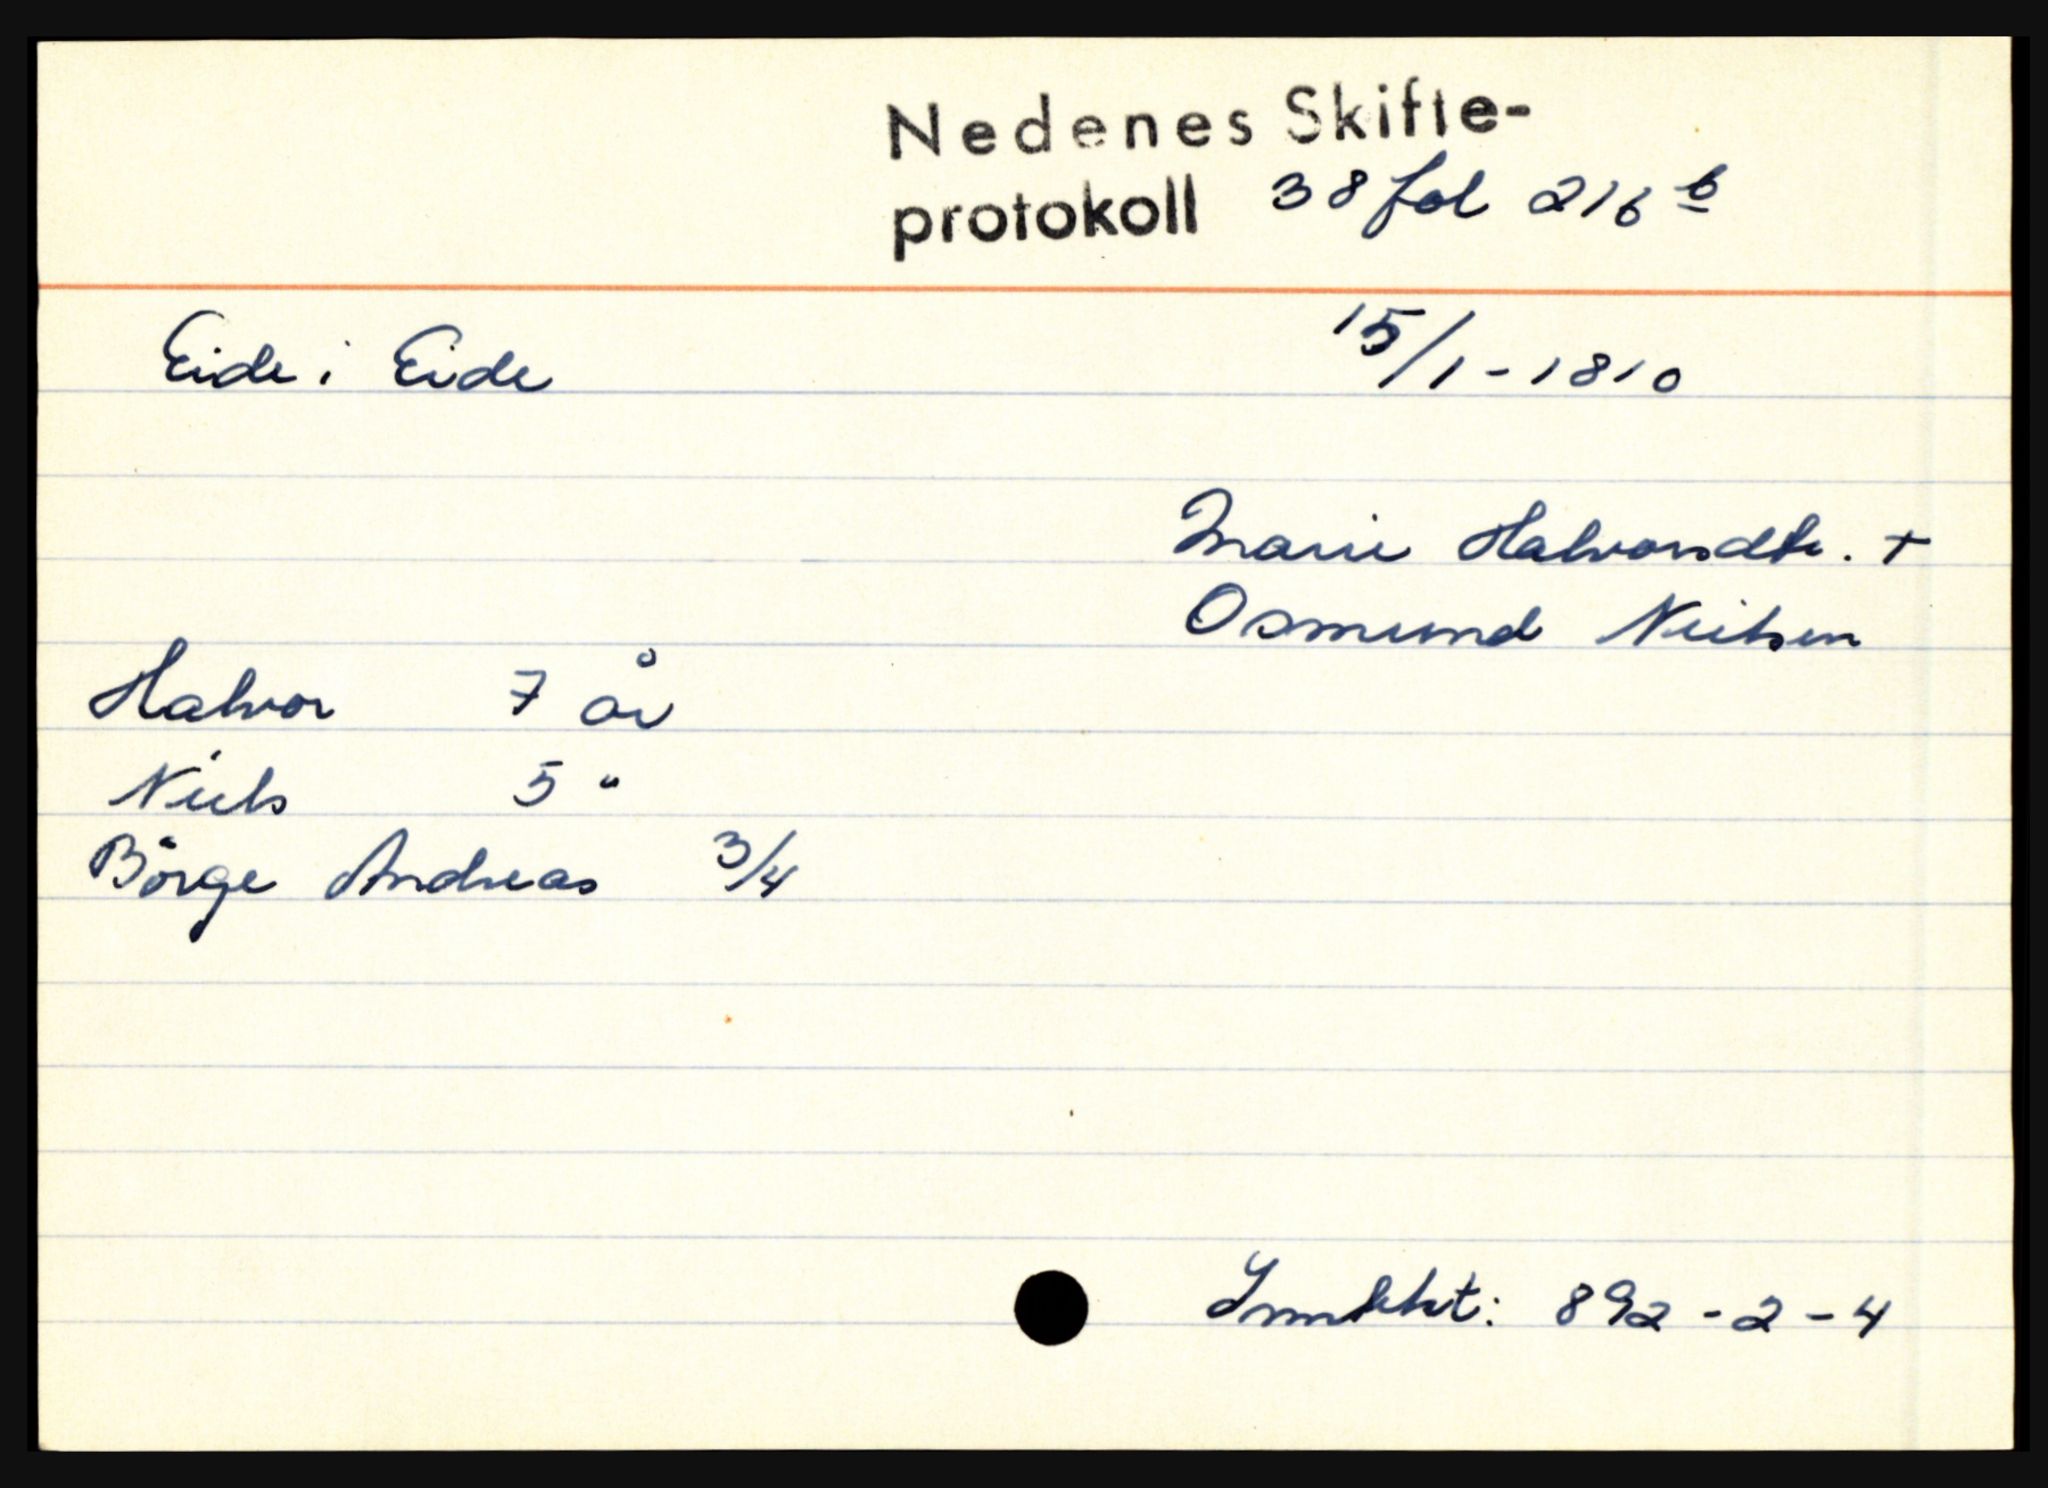 Nedenes Skifte-
protokoll 38 fol 216 b
Eide i Eide 15/1-1810
Marie Halvorsdtr. +
Osmund Nielsen
Halvor 7 år
Niels 5 "
Börge Andreas 3/4
892-2-4